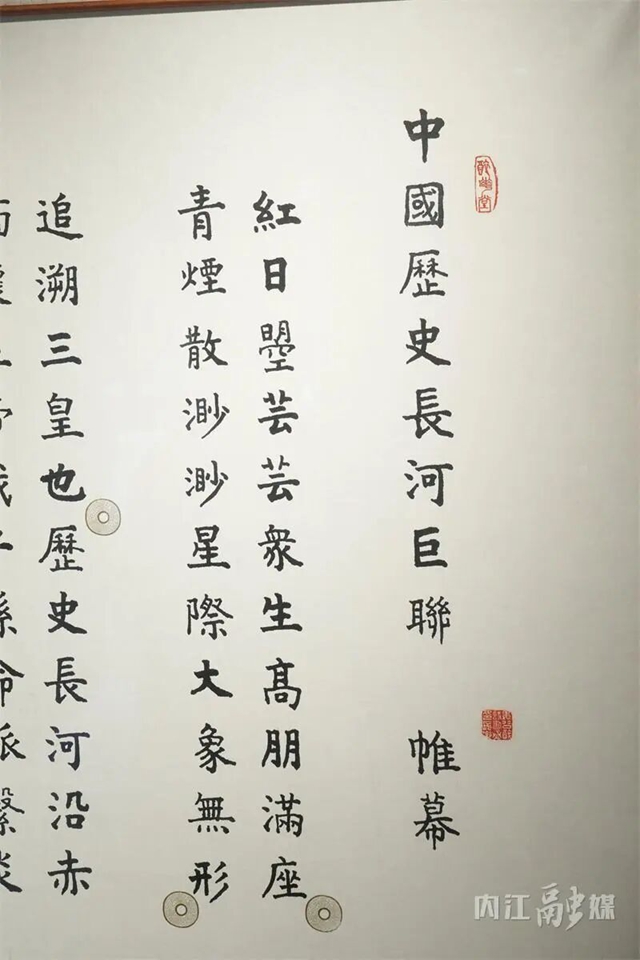 中國歷史長河巨聯 帷幕
紅日曌芸芸衆生高朋滿座
青煙散渺渺星際大象無形
追溯三皇也歷史長河沿赤
内江融媒